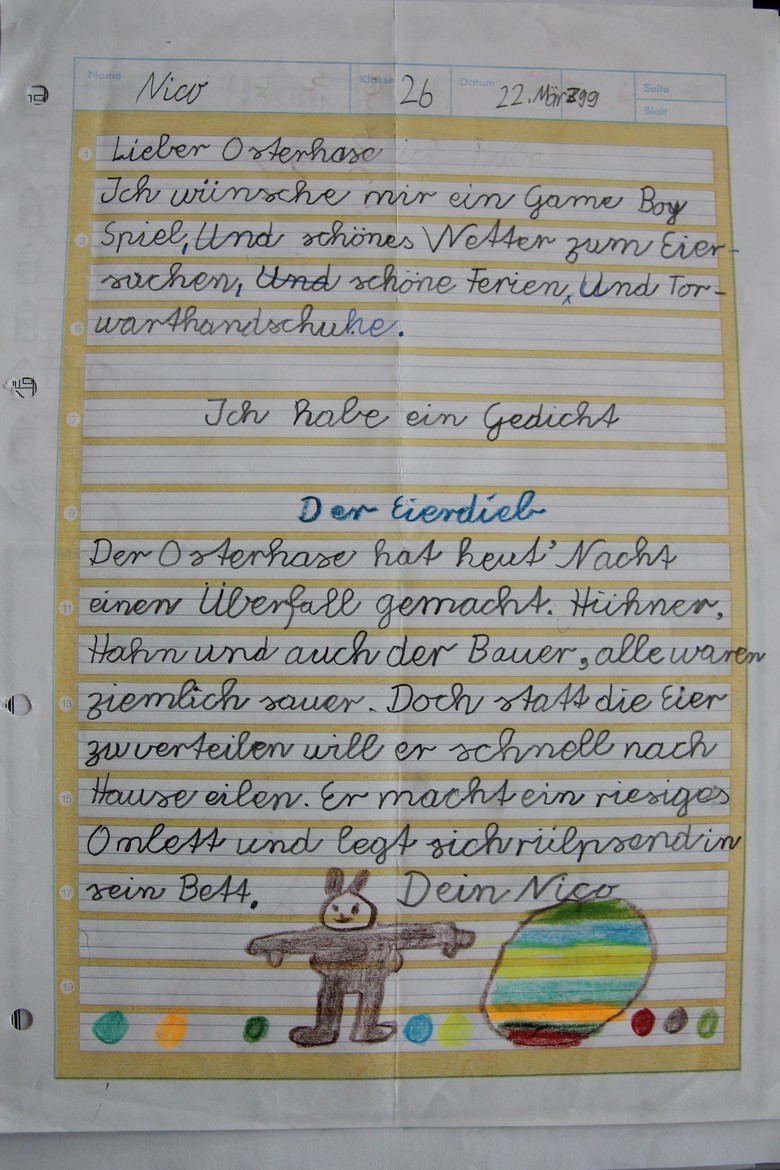 Name Nico Klasse 2b Datum 22. März 99 Seite
Blatt
1 Lieber Osterhase
Ich wünsche mir ein Game Boy
3 Spiel, Und schönes Wetter zum Eier-
suchen, Und schöne Ferien, Und Tor-
5 warthandschuhe.
7 Ich habe ein Gedicht
9 Der Eierdieb
Der Osterhase hat heut' Nacht
11 einen Überfall gemacht. Hühner,
Hahn und auch der Bauer, alle waren
13 ziemlich sauer. Doch statt die Eier
zuverteilen will er schnell nach
15 Hause eilen. Er macht ein riesiges
Omlett und legt sich rülpsend in
17 sein Bett. Dein Nico
19